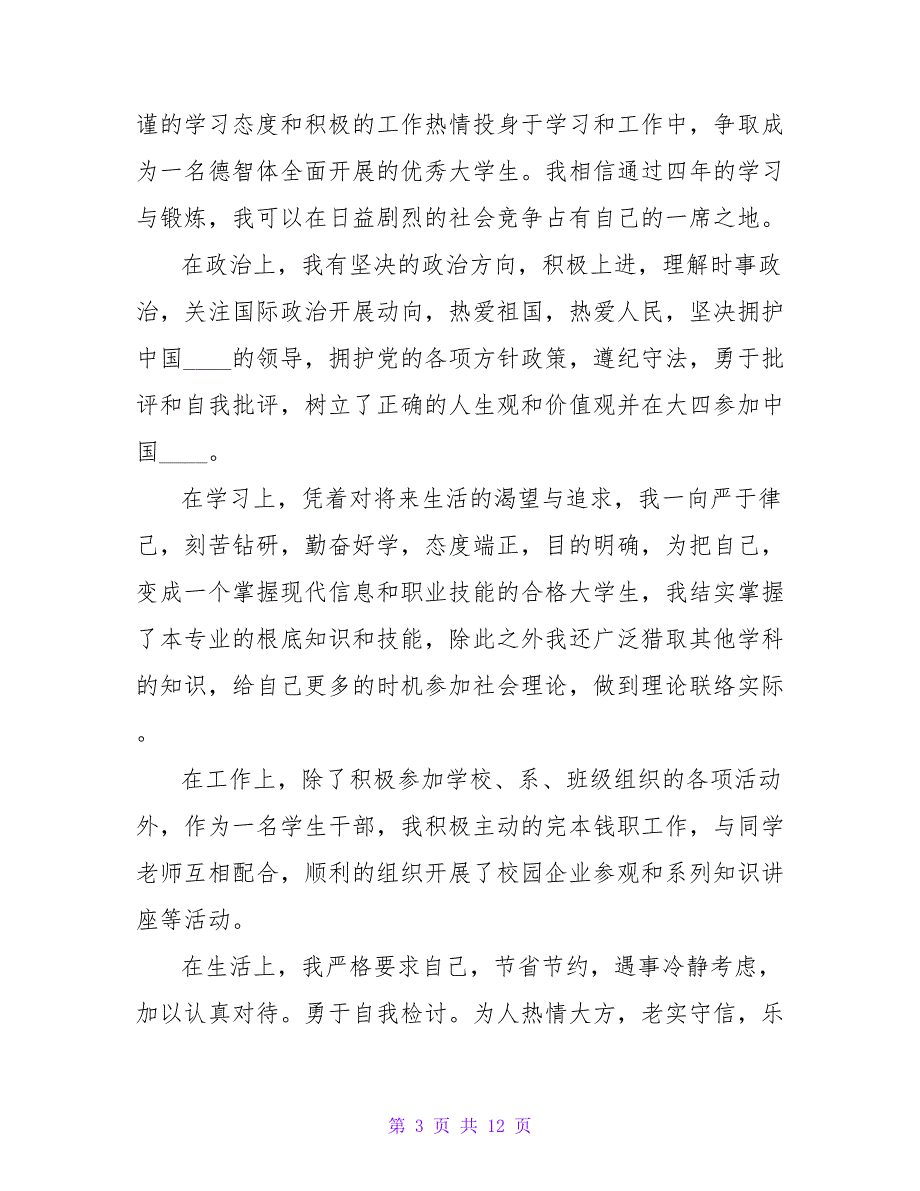 谨的学习态度和积极的工作热情投身于学习和工作中，争取成
为一名德智体全面开展的优秀大学生。我相信通过四年的学习
与锻炼，我可以在日益剧烈的社会竞争占有自己的一席之地。
在政治上，我有坚决的政治方向，积极上进，理解时事政
治，关注国际政治开展动向，热爱祖国，热爱人民，坚决拥护
中国____的领导，拥护党的各项方针政策，遵纪守法，勇于批
评和自我批评，树立了正确的人生观和价值观并在大四参加中
国____。
在学习上，凭着对将来生活的渴望与追求，我一向严于律
己，刻苦钻研，勤奋好学，态度端正，目的明确，为把自己，
变成一个掌握现代信息和职业技能的合格大学生，我结实掌握
了本专业的根底知识和技能，除此之外我还广泛猎取其他学科
的知识，给自己更多的时机参加社会理论，做到理论联络实际
。
在工作上，除了积极参加学校、系、班级组织的各项活动
外，作为一名学生干部，我积极主动的完本钱职工作，与同学
老师互相配合，顺利的组织开展了校园企业参观和系列知识讲
座等活动。
在生活上，我严格要求自己，节省节约，遇事冷静考虑，
加以认真对待。勇于自我检讨。为人热情大方，老实守信，乐
第 3 页 共 12 页